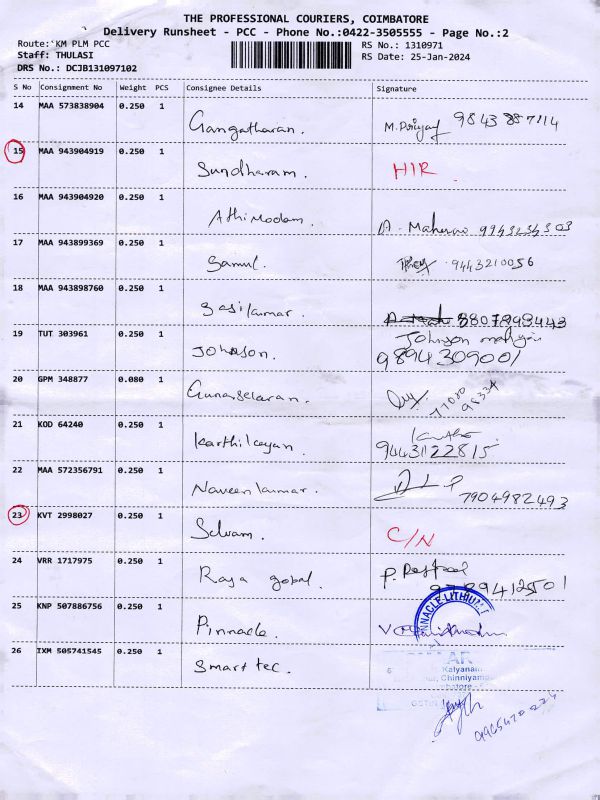 THE PROFESSIONAL COURIERS, COIMBATORE
Delivery Runsheet - PCC - Phone No.:0422-3505555 - Page No.:2
Route: KM PLM PCC
RS No.: 1310971
Staff: THULASI
RS Date: 25-Jan-2024
DRS No.: DCJB131097102
S No Consignment No Weight PCS Consignee Details Signature
14 MAA 573838904 0.250 1 Gangatharan. M. 9843887114
15 MAA 943904919 0.250 1 Sundharam. HIR
16 MAA 943904920 0.250 1 Athimoolam. 9943234303
17 MAA 943899369 0.250 1 Samul. 9443210056
18 MAA 943898760 0.250 1 Sasikumar.
19 TUT 303961 0.250 1 Johnson. Johnson
9894309001
20 GPM 348877 0.080 1 Gunaselaran.
21 KOD 64240 0.250 1 Karthikeyan
9443122815
22 MAA 572356791 0.250 1 Naveenkumar. 7904982493
23 KVT 2998027 0.250 1 Selvam. C/N
24 VRR 1717975 0.250 1 Raja gobal.
25 KNP 507886756 0.250 1 Pinnacle. PINNACLE LITHIUM
26 IXM 505741545 0.250 1 Smart tec.